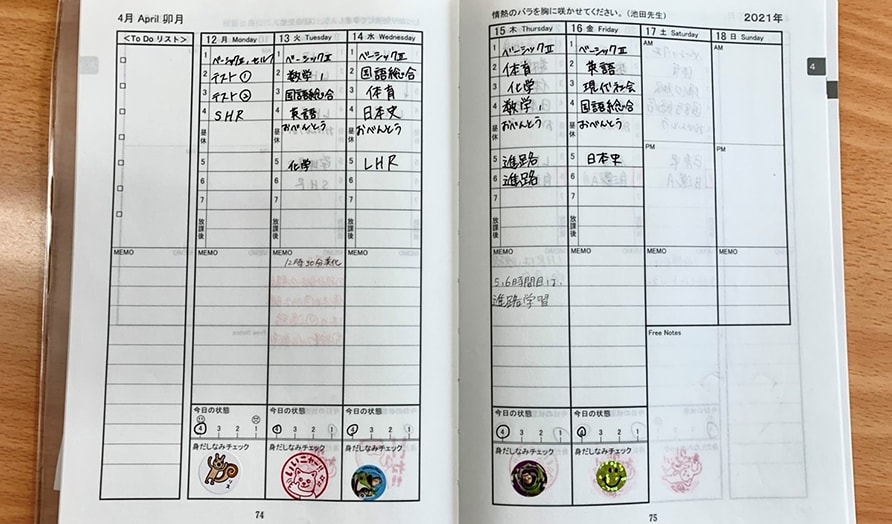 4月 April 卯月
<To Do リスト>
12 月 Monday
13 火 Tuesday
14 水 Wednesday
1 ベーシックⅡ, セルフ
ベーシックⅡ
1 ベーシックⅡ
2 テスト①
数学1
2 国語総合
3 テスト②
国語総合
3 体育
4 SHR
英語
4 日本史
昼休
おべんとう
昼休
おべんとう
5
化学
5 LHR
6
6
7
7
放課後
放課後
MEMO
MEMO
MEMO
MEMO
今日の状態
今日の状態
今日の状態
4 3 2 1
4 3 2 1
4 3 2 1
身だしなみチェック
身だしなみチェック
身だしなみチェック
いいニャー!
74
情熱のバラを胸に咲かせてください。(池田先生)
2021年
15 木 Thursday
16 金 Friday
17 土 Saturday
18 日 Sunday
1 ベーシックⅡ
1 ベーシックⅡ
AM
AM
2 体育
2 英語
3 化学
3 現代社会
4 数学1
4 国語総合
昼休
おべんとう
昼休
おべんとう
PM
PM
5 進路
5 日本史
6 進路
6
7
7
放課後
放課後
MEMO
MEMO
MEMO
MEMO
5,6時間目は、
進路学習
Free Notes
今日の状態
今日の状態
4 3 2 1
4 3 2 1
身だしなみチェック
身だしなみチェック
4
75